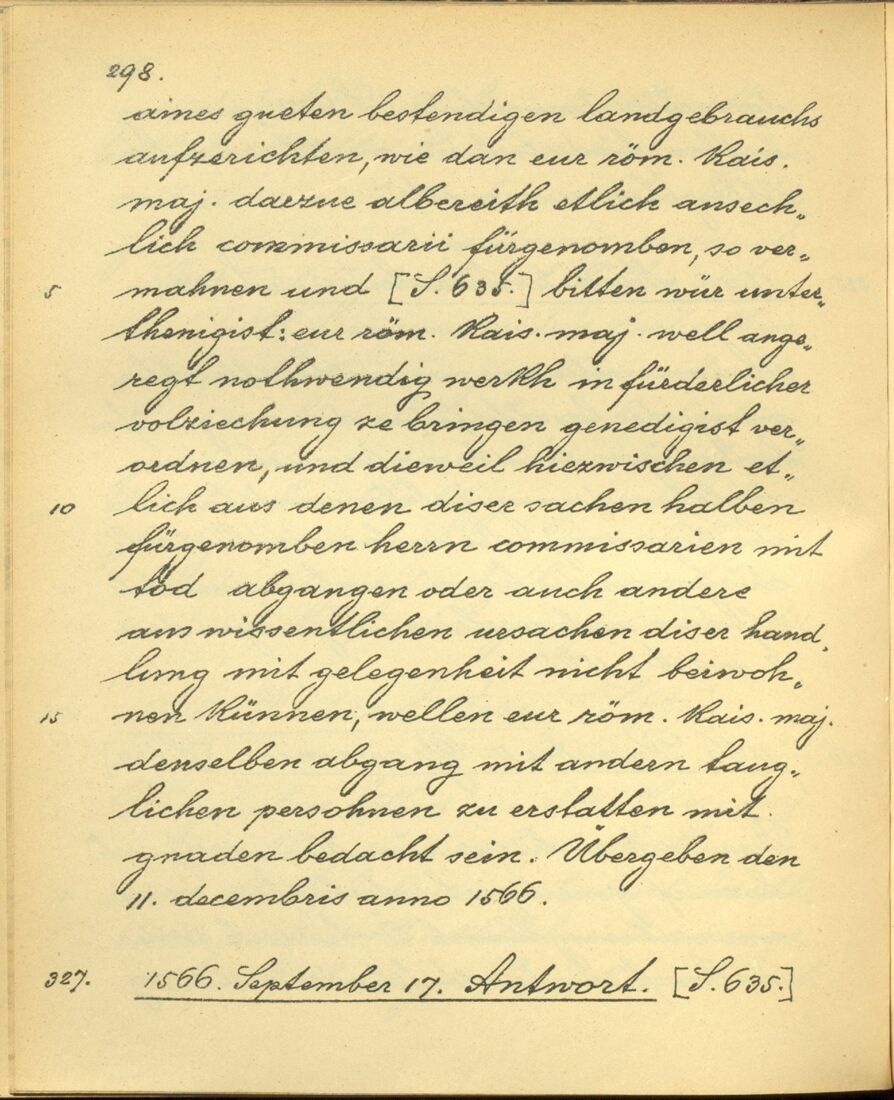 298.
aines gueten bestendigen landgebrauchs
aufzerichten, wie dan eur röm. Kais.
maj. darzue albereith etlich ansech„
lich commissarii fürgenomben, so ver„
5 mahnen und [S. 635.] bitten wür unter„
thenigist: eur röm. Kais. maj. well ange„
regt nothwendig werkh in fürderlicher
volziechung ze bringen genedigist ver„
ordnen, und dieweil hiezwischen et„
10 lich aus denen diser sachen halben
fürgenomben herrn commissarien mit
tod abgangen oder auch andere
aus wissentlichen ursachen diser hand„
lung mit gelegenheit nicht beiwoh„
15 nen künnen, wellen eur röm. Kais. maj.
denselben abgang mit andern taug„
lichen persohnen zu erstatten mit
gnaden bedacht sein. Übergeben den
11. decembris anno 1566.
327. 1566. September 17. Antwort. [S. 635.]